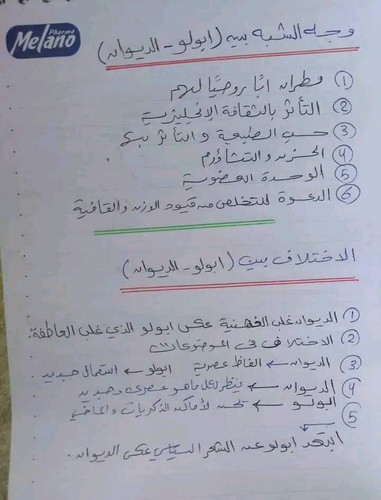 Pharma
Melano
وجه الشبه بين (ابولو - الديوان)
① مطران ابًا روحيًا لهم
② التأثر بالثقافة الانجليزية
③ حب الطبيعة والتأثر بهم
④ الحزن والتشاؤم
⑤ الوحدة العضوية
⑥ الدعوة للتخلص من قيود الوزن والقافية
الاختلاف بين (ابولو - الديوان)
① الديوان غلب الذهنية عكس ابولو الذي غلب العاطفة.
② الاختلاف في الموضوعات
③ الديوان ← الفاظ عصرية ابولو ← استعمال جديد.
④ الديوان ← ينظر لكل ما هو عصري وجديد
ابولو ← تحن لأماكن الذكريات والماضي
⑤ ابتعد ابولو عن الشعر السياسي عكس الديوان.